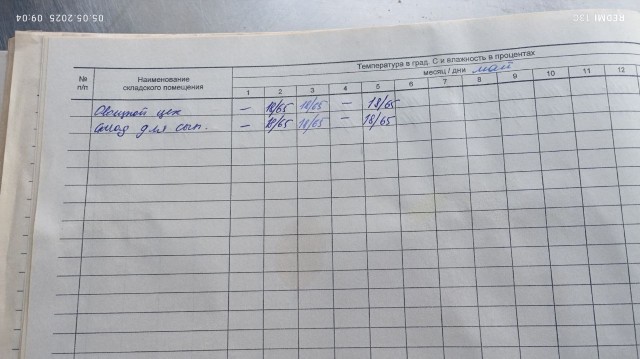 05.05.2025 09:04
REDMI 13C
Температура в град. С и влажность в процентах
№ п/п
Наименование складского помещения
месяц / дни май
1 2 3 4 5 6 7 8 9 10 11 12
Овощной цех — 18/65 18/65 — 18/65
Склад для сып. — 18/65 18/65 — 18/65